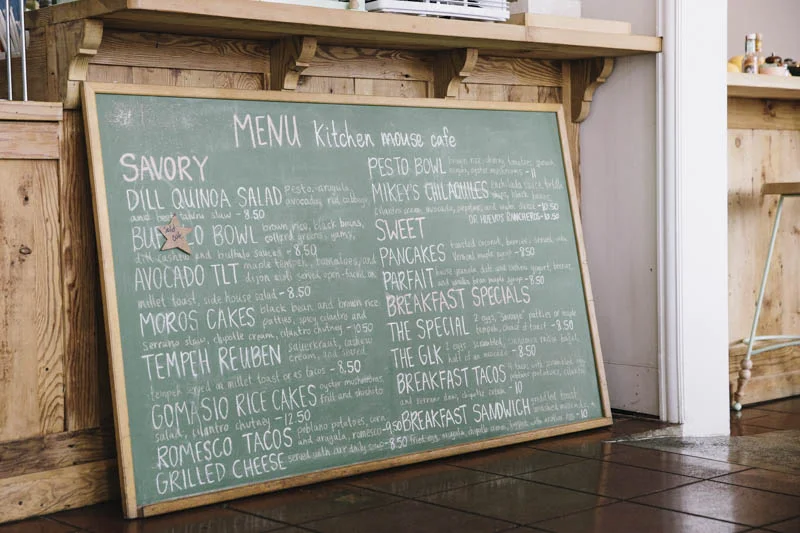 MENU Kitchen mouse cafe
SAVORY
DILL QUINOA SALAD Pesto, arugula,
avocado, red cabbage,
and beet tahini slaw - 8.50
BU O BOWL brown rice, black beans,
sold out
collard greens, yams,
dill cashew and buffalo sauces - 8.50
AVOCADO TLT maple tempeh, tomatoes, and
dijon aioli served open-faced on
millet toast, side house salad - 8.50
MOROS CAKES black bean and brown rice
patties, spicy cilantro and
serrano slaw, chipotle creme, cilantro chutney - 10.50
TEMPEH REUBEN sauerkraut, cashew
cream, and
on millet toast or as tacos - 8.50
GOMASIO RICE CAKES oyster mushrooms,
kale and shishito
salad, cilantro chutney - 12.50
ROMESCO TACOS poblano potatoes, corn,
and arugula, romesco - 9.50
GRILLED CHEESE served with our daily soup - 8.50
PESTO BOWL brown rice, cherry tomatoes, spinach,
oyster mushrooms - 11
MIKEY'S CHILAQUILES enchilada sauce, tortilla
chips, black beans,
cilantro cream, avocado, pepitas, and onion - 10.50
OR HUEVOS RANCHEROS - 10.50
SWEET
PANCAKES toasted coconut, berries, served with
Vermont maple syrup - 8.50
PARFAIT house granola, date and cashew yogurt, berries,
and vanilla bean maple syrup - 8.50
BREAKFAST SPECIALS
THE SPECIAL 2 eggs, "sausage" patties or maple
tempeh, choice of toast - 8.50
THE GLK 2 eggs scrambled,
half of an avocado - 8.50
BREAKFAST TACOS
and serrano slaw, chipotle cream - 10
BREAKFAST SANDWICH griddled toast,
fried egg, arugula, chipotle cream, - 10